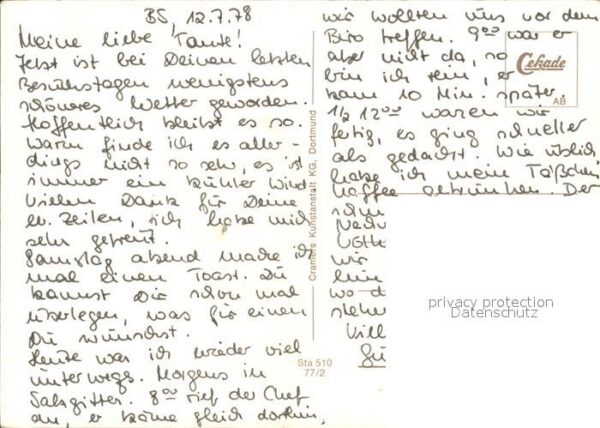 BS, 12.7.78
Meine liebe Tante!
Jetzt ist bei Deinen letzten
Besuchstagen wenigstens
schöneres Wetter geworden.
Hoffentlich bleibt es so.
Warm finde ich es aller-
dings nicht so sehr, es ist
immer ein kühler Wind.
Vielen Dank für Deine
lb. Zeilen, ich habe mich
sehr gefreut.
Samstag abend mache ich
mal einen Toast. Du
kannst Dir schon mal
überlegen, was für einen
Du wünschst.
Heute war ich wieder viel
unterwegs. Morgens in
Salzgitter. 8⁰⁰ rief der Chef
an, er käme gleich dorthin,
wir wollten uns vor dem
Büro treffen. 9⁰⁰ war er
aber nicht da, so
bin ich rein, er
kam 10 Min. später.
1/2 12⁰⁰ waren wir
fertig, es ging schneller
als gedacht. Wie üblich
habe ich mein Täßchen
Kaffee getrunken. Der
wir
wo d
Viel
Cekade
AB
Cramers Kunstanstalt KG, Dortmund
Sta 510
77/2
privacy protection
Datenschutz